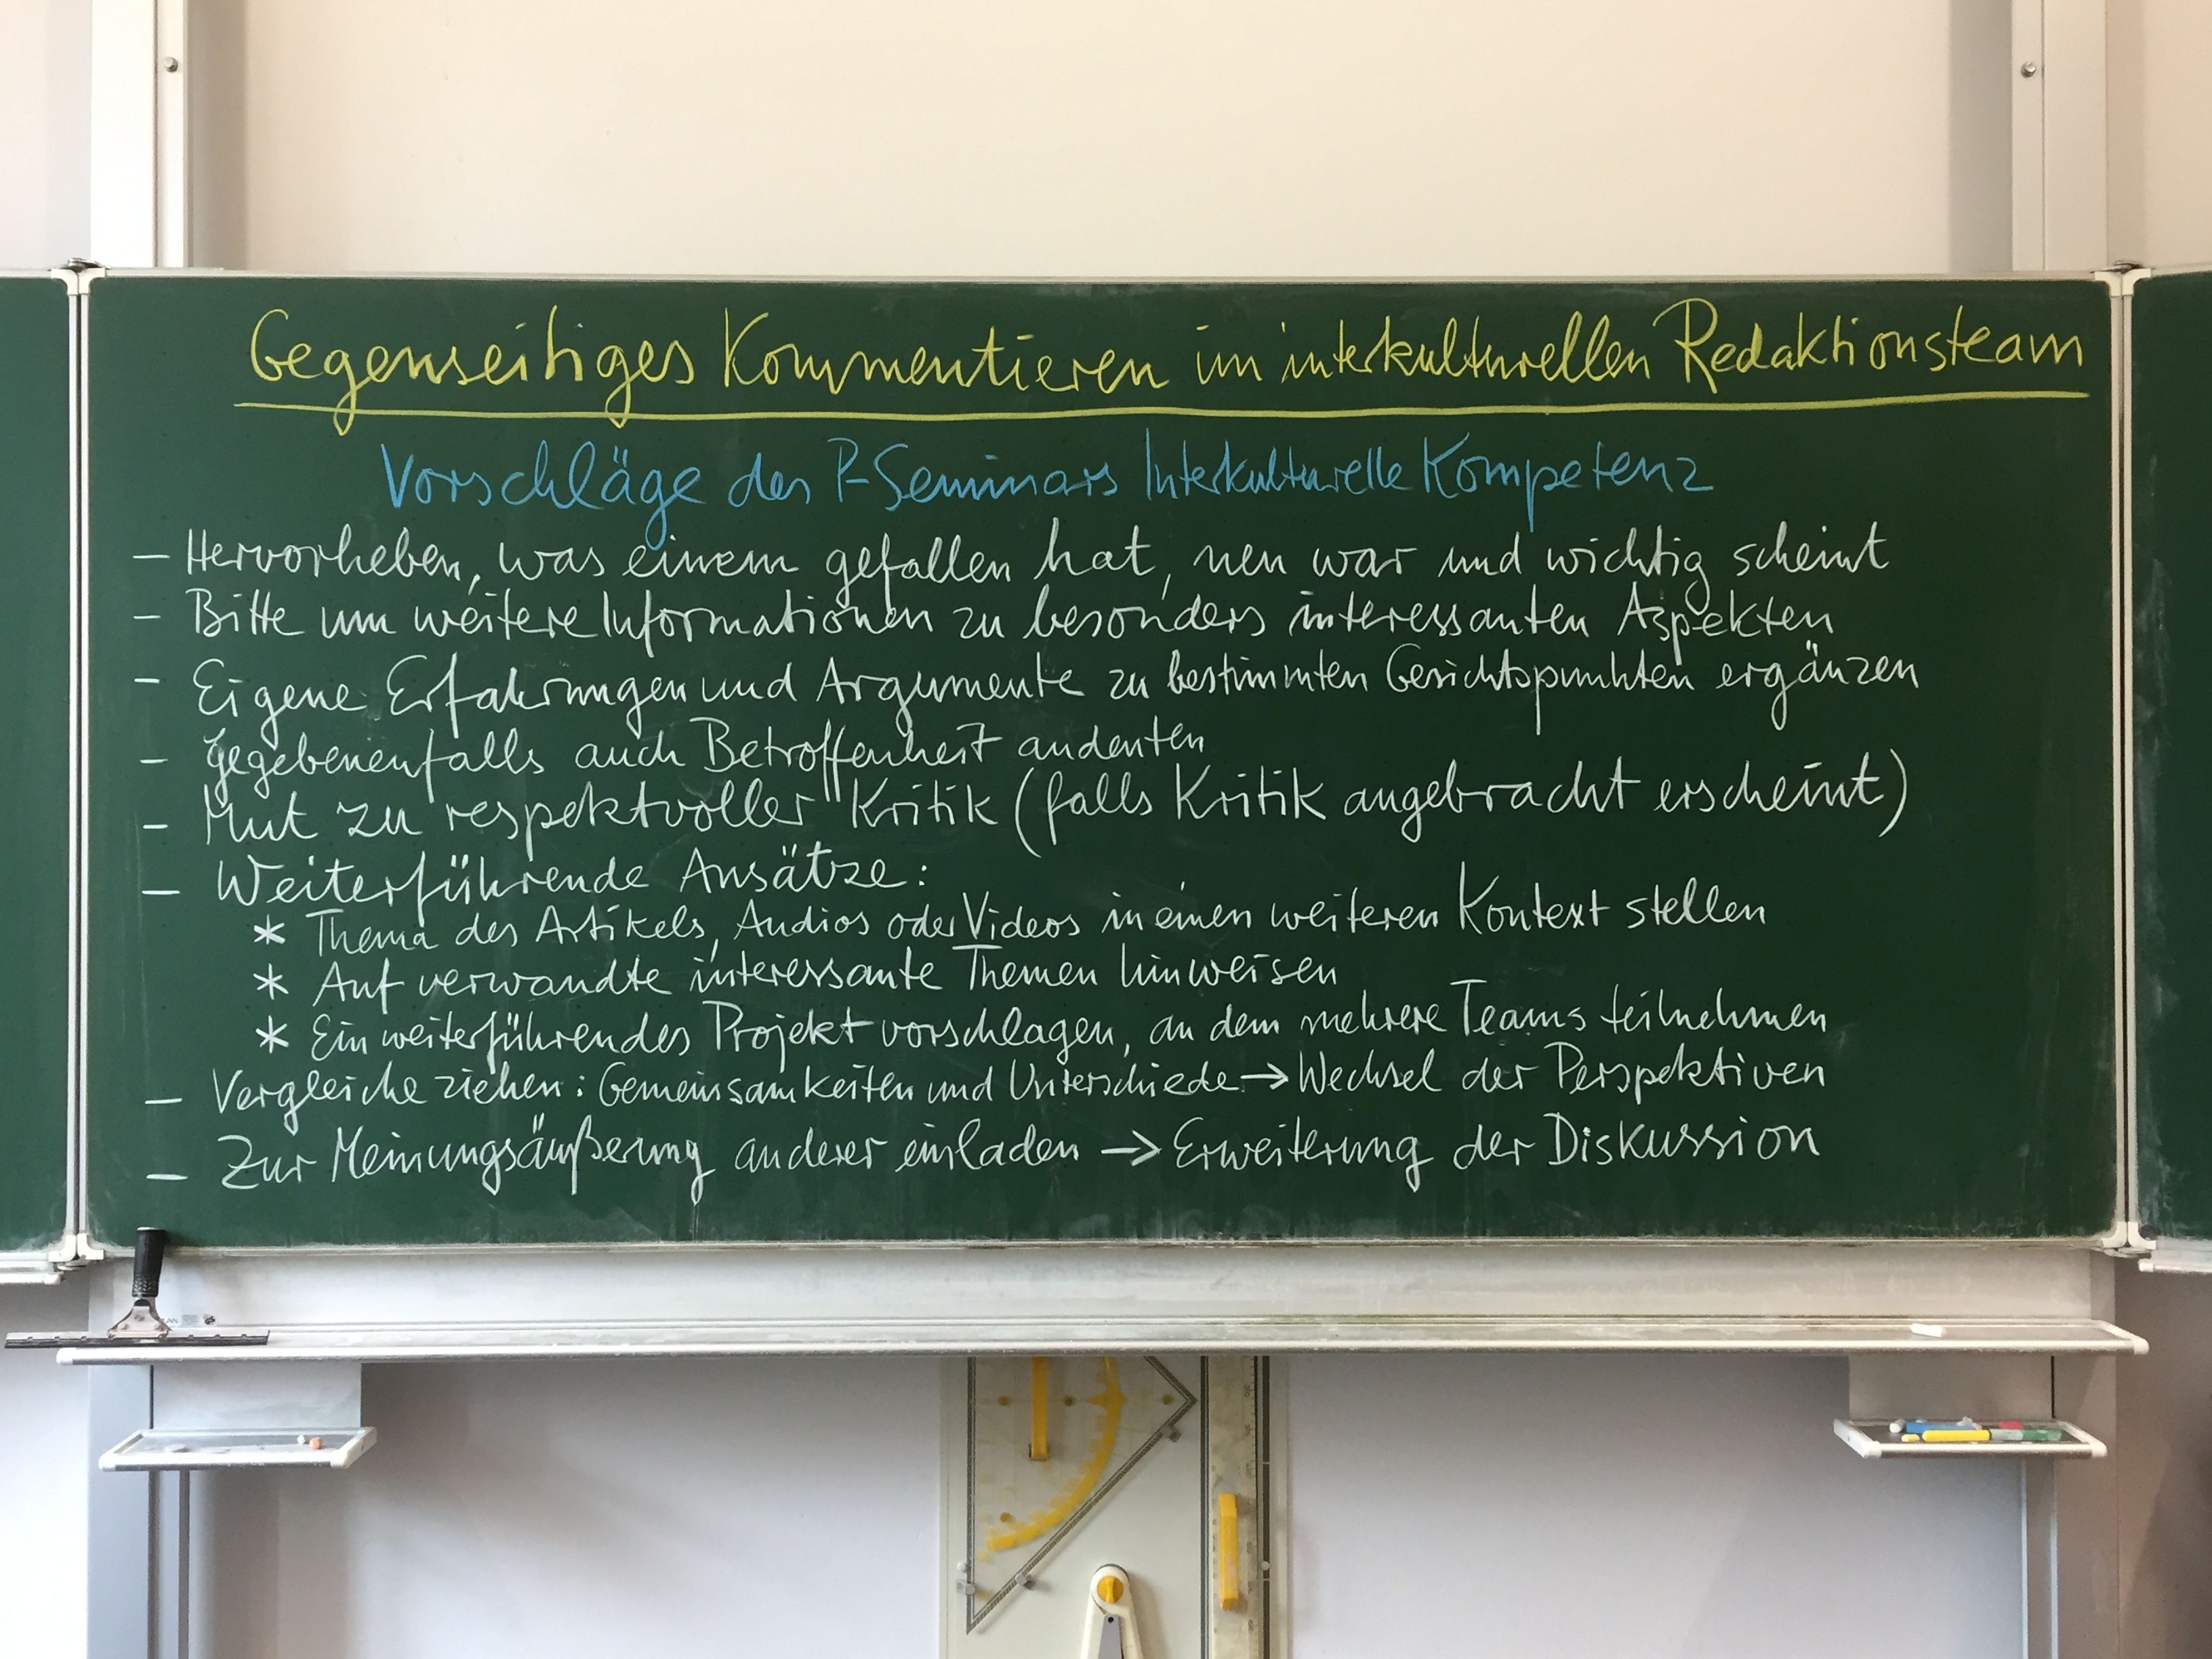 Gegenseitiges Kommentieren im interkulturellen Redaktionsteam
Vorschläge des P-Seminars Interkulturelle Kompetenz
– Hervorheben, was einem gefallen hat, neu war und wichtig scheint
– Bitte um weitere Informationen zu besonders interessanten Aspekten
– Eigene Erfahrungen und Argumente zu bestimmten Gesichtspunkten ergänzen
– gegebenenfalls auch Betroffenheit andeuten
– Mut zu respektvoller Kritik (falls Kritik angebracht erscheint)
– Weiterführende Ansätze:
* Thema des Artikels, Audios oder Videos in einen weiteren Kontext stellen
* Auf verwandte interessante Themen hinweisen
* Ein weiterführendes Projekt vorschlagen, an dem mehrere Teams teilnehmen
– Vergleiche ziehen: Gemeinsamkeiten und Unterschiede → Wechsel der Perspektiven
– Zur Meinungsäußerung anderer einladen → Erweiterung der Diskussion